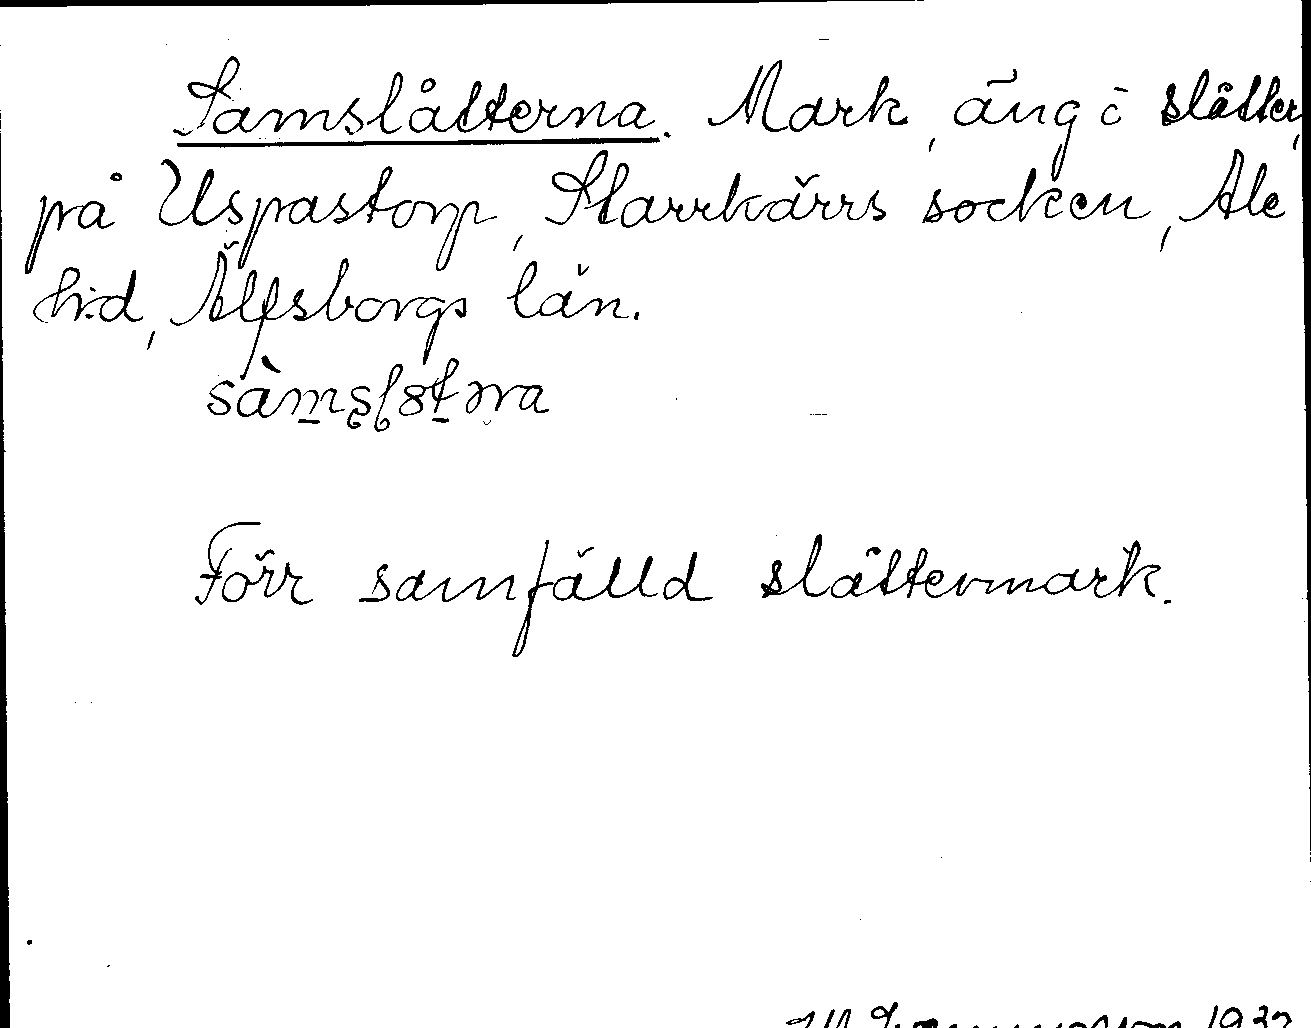 Samslåtterna. Mark, äng i slåtter,
på Uspastorp, Starrkärrs socken, Ale
h:d, Älfsborgs län.
Förr samfälld slåttermark.
1932